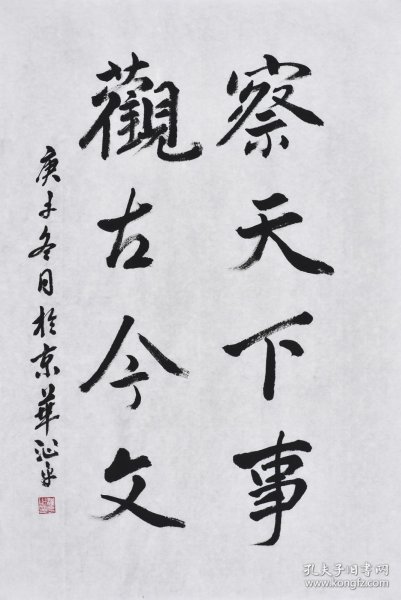 察天下事
觀古今文
庚子冬月於京華
孔夫子旧书网
www.kongfz.com